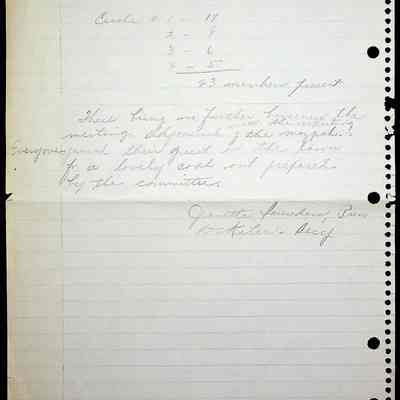 Circle # 1 - 18
2 - 9
3 - 6
4 - 5
43 members present
There being no further business the
meeting adjourned the
Everyone joined their on the lawn
for a lovely cook out prepared
by the committee.
Saunders, Pres
Secy